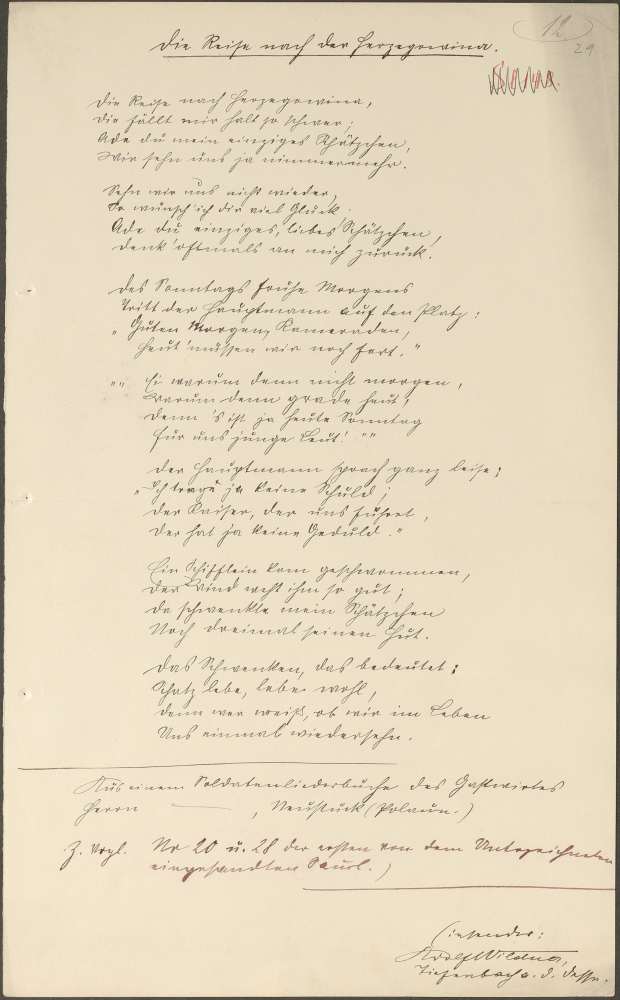 12
29
Die Reise nach der Herzegowina.
Die Reise nach Herzegowina,
Die fällt mir halt so schwer;
Ade du mein einziges Schätzchen,
Wir sehn uns ja nimmermehr.
Sehn wir uns nicht wieder,
So wünsch' ich dir viel Glück.
Ade du einziges, liebes Schätzchen,
Denk' oftmals an mich zurück.
Des Sonntags frühe Morgens
Tritt der Hauptmann auf den Platz:
„Guten Morgen, Kameraden,
Heut' müssen wir noch fort."
„„Ei warum denn nicht morgen,
Warum denn grade heut'?
Denn 's ist ja heute Sonntag
Für uns junge Leut'.""
Der Hauptmann sprach ganz leise;
„Ich trage ja keine Schuld;
Der Kaiser, der uns führet,
Der hat ja keine Geduld."
Ein Schifflein kam geschwommen,
Der Wind weht ihm so gut;
Da schwenkte mein Schätzchen
Noch dreimal seinen Hut.
Das Schwenken, das bedeutet:
Schatz lebe, lebe wohl,
Denn wer weiß, ob wir im Leben
Uns einmal wiedersehn.
Aus einem Soldatenliederbuche des Gastwirtes
Herrn —, Neustück (Polaun.)
Z. Vergl. No 20 u. 28 der ersten von dem Unterzeichneten
eingesandten Samml.)
Einsender:
Adolf Wildner,
Tiefenbach a. d. Desse.